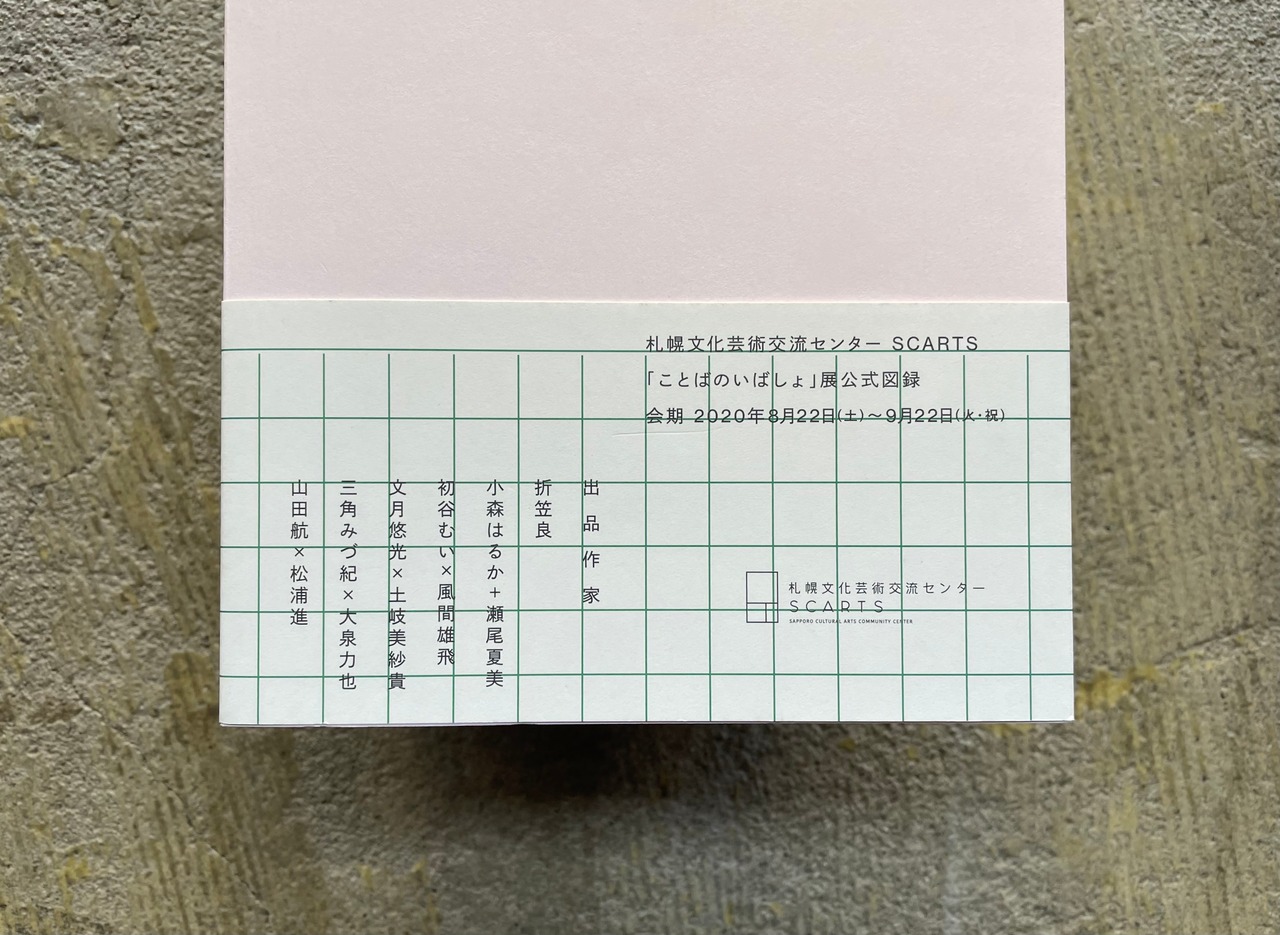 札幌文化芸術交流センター SCARTS
「ことばのいばしょ」展公式図録
会期 2020年8月22日(土)〜9月22日(火・祝)
出品作家
折笠良
小森はるか+瀬尾夏美
初谷むい×風間雄飛
文月悠光×土岐美紗貴
三角みづ紀×大泉力也
山田航×松浦進
札幌文化芸術交流センター
SCARTS
SAPPORO CULTURAL ARTS COMMUNITY CENTER